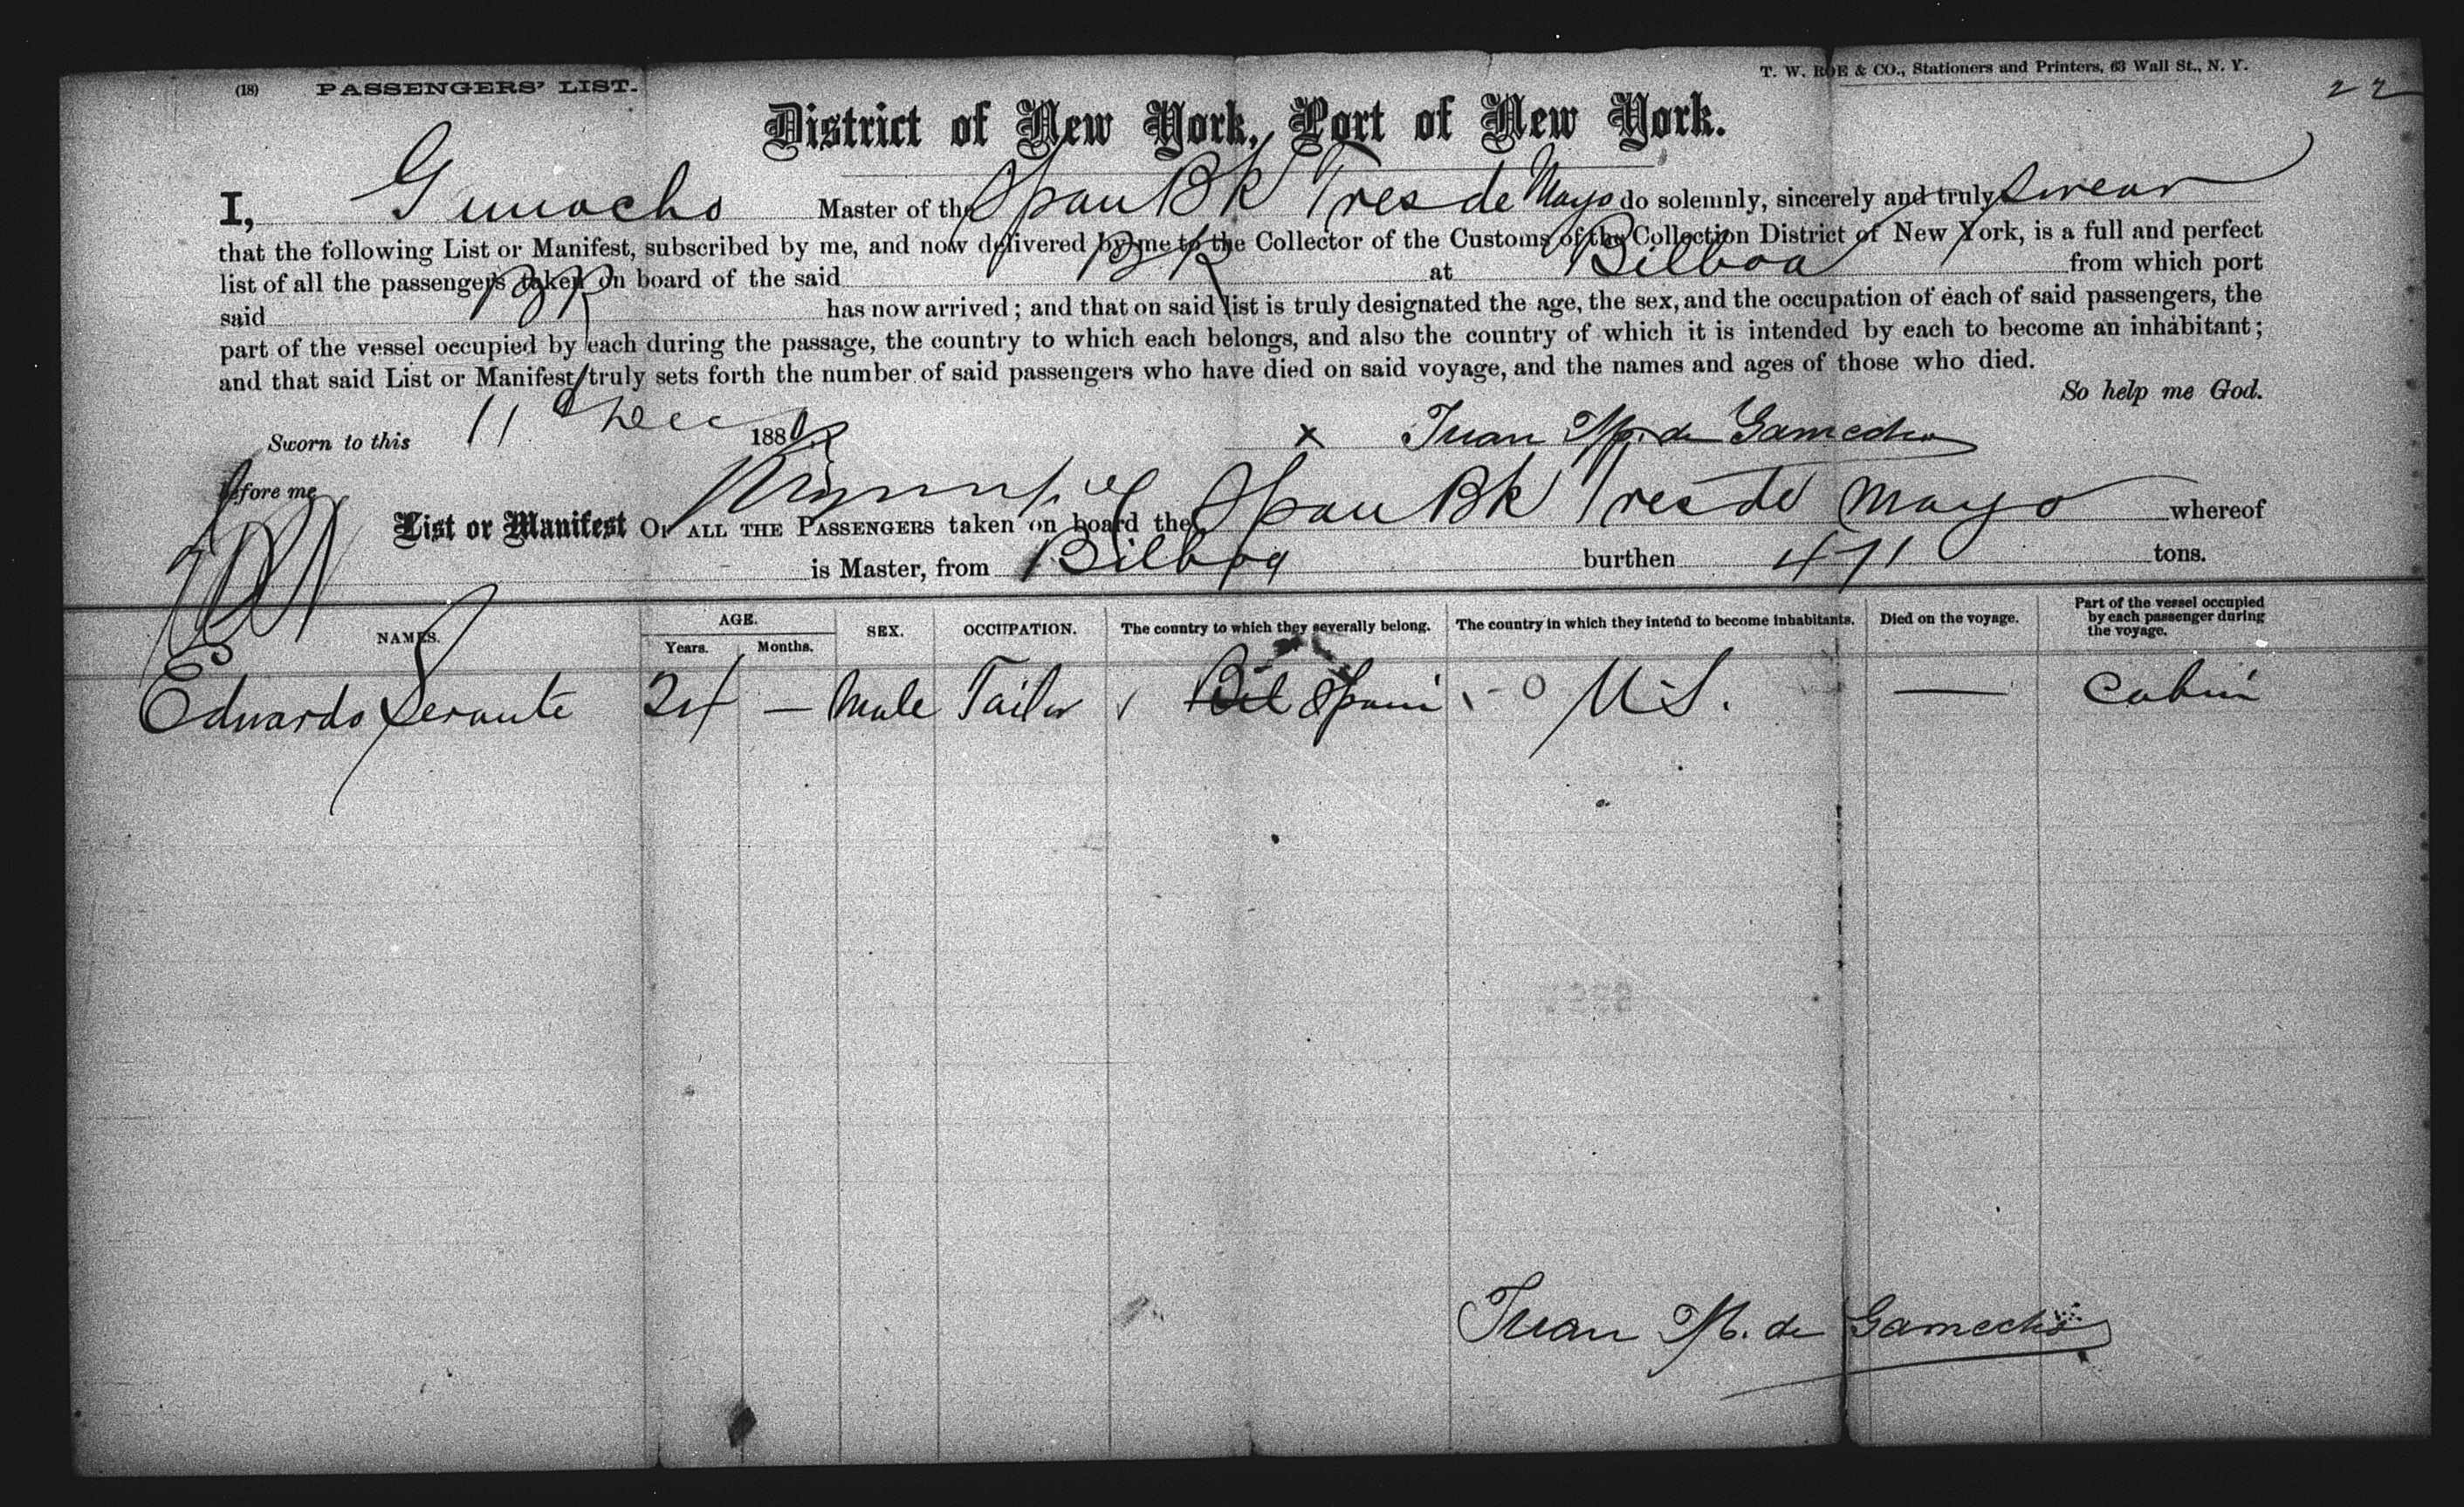 (18) PASSENGERS' LIST.
T. W. ROE & CO., Stationers and Printers, 63 Wall St., N. Y.
22
District of New York, Port of New York.
I, Master of the Span Bk Tres de Mayo do solemnly, sincerely and truly swear
that the following List or Manifest, subscribed by me, and now delivered by me to the Collector of the Customs of the Collection District of New York, is a full and perfect
list of all the passengers taken on board of the said Bk at Bilboa from which port
said Bk has now arrived; and that on said list is truly designated the age, the sex, and the occupation of each of said passengers, the
part of the vessel occupied by each during the passage, the country to which each belongs, and also the country of which it is intended by each to become an inhabitant;
and that said List or Manifest truly sets forth the number of said passengers who have died on said voyage, and the names and ages of those who died.
So help me God.
Sworn to this 11 Dec 188
x Juan M. de Gamecho
Before me
List or Manifest OF ALL THE PASSENGERS taken on board the Span Bk Tres de Mayo whereof
is Master, from Bilboa burthen 471 tons.
NAMES. AGE. Years. Months. SEX. OCCUPATION. The country to which they severally belong. The country in which they intend to become inhabitants. Died on the voyage. Part of the vessel occupied by each passenger during the voyage.
Edwardo Serante 24 — Male Tailor Bil Spain U.S. — Cabin
Juan M. de Gamecho